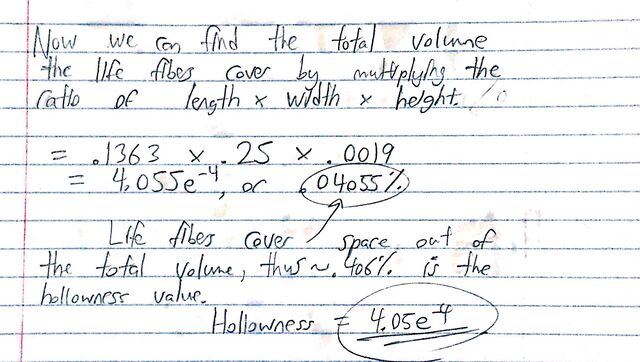 Now we can find the total volume
the life fibes cover by multiplying the
ratio of length x width x height.
= .1363 x .25 x .0019
= 4.055e⁻⁴, or .04055%
Life fibes cover space out of
the total volume, thus ~.406% is the
hollowness value.
Hollowness = 4.05e⁻⁴